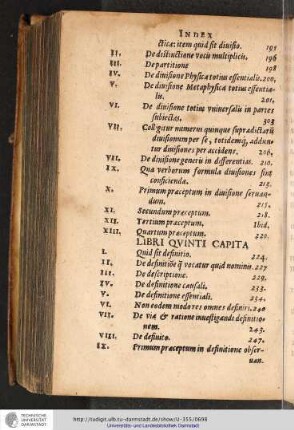 INDEX
cticæ: item quid sit diuisio. 195
II. De distinctione vocis multiplicis. 196
III. De partitione 198
IV. De diuisione Physica totius essentialis. 200.
V. De diuisione Metaphysica totius essentia-
lis. 201.
VI. De diuisione totius vniuersalis in partes
subiectas. 303
VII. Colligitur numerus quinque supradictarū
diuisionum per se, totidemq́, addun-
tur diuisiones per accidens. 206.
VIII. De diuisione generis in differentias. 210.
IX. Qua verborum formula diuisiones sint
conficiendæ. 213.
X. Primum præceptum in diuisione seruan-
dum. 215.
XI. Secundum præceptum. 218.
XII. Tertium præceptum. Ibid.
XIII. Quartum præceptum. 221
LIBRI QVINTI CAPITA
I. Quid sit definitio. 224.
II. De definitiōe q̄ vocatur quid nominis. 227
III. De descriptione. 229.
IV. De definitione causali. 233.
V. De definitione essentiali. 234.
VI. Non eodem modo res omnes definiri. 240
VII. De via & ratione inuestigandi definitio-
nem. 243.
VIII. De definito. 247.
IX. Primum præceptum in definitione obser-
uan.
TECHNISCHE
UNIVERSITÄT
DARMSTADT
http://tudigit.ulb.tu-darmstadt.de/show/W-355/0696
Universitäts- und Landesbibliothek Darmstadt